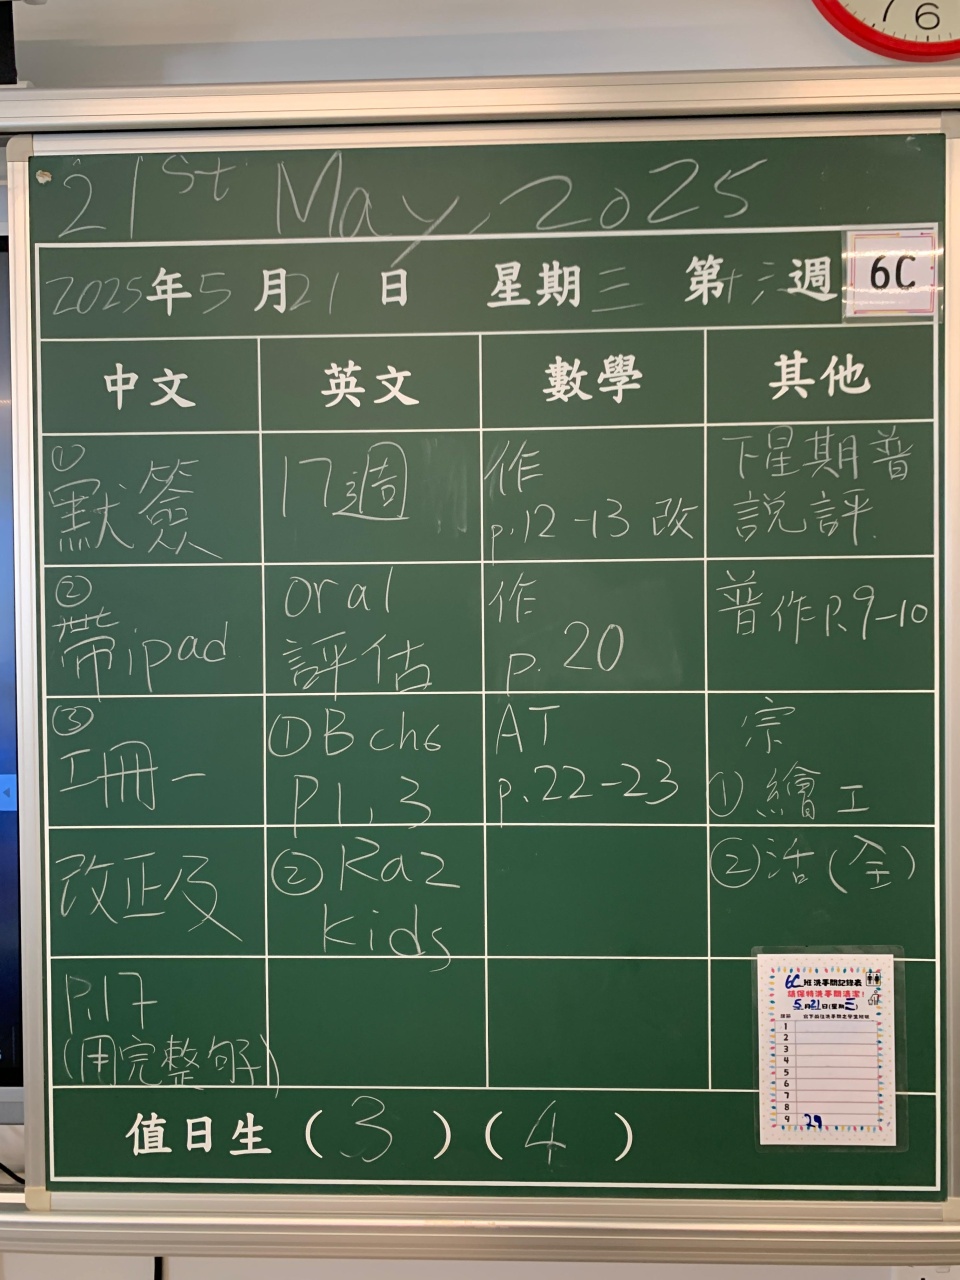 7 6
21st May, 2025
2025年5月21日 星期三 第十三週
6C
中文 英文 數學 其他
① 默簽
② 帶ipad
③ 工冊一
改正及
P.17
(用完整句子)
17週
oral
評估
① B ch6
P1, 3
② Raz
kids
作
p.12-13 改
作
p. 20
AT
p.22-23
下星期普
說評
普作P.9-10
宗
① 繪工
② 活(全)
值日生 (3) (4)
6C班洗手間記錄表
請保持洗手間清潔!
5月21日(星期三)
1
2
3
4
5
6
7
8
9 29